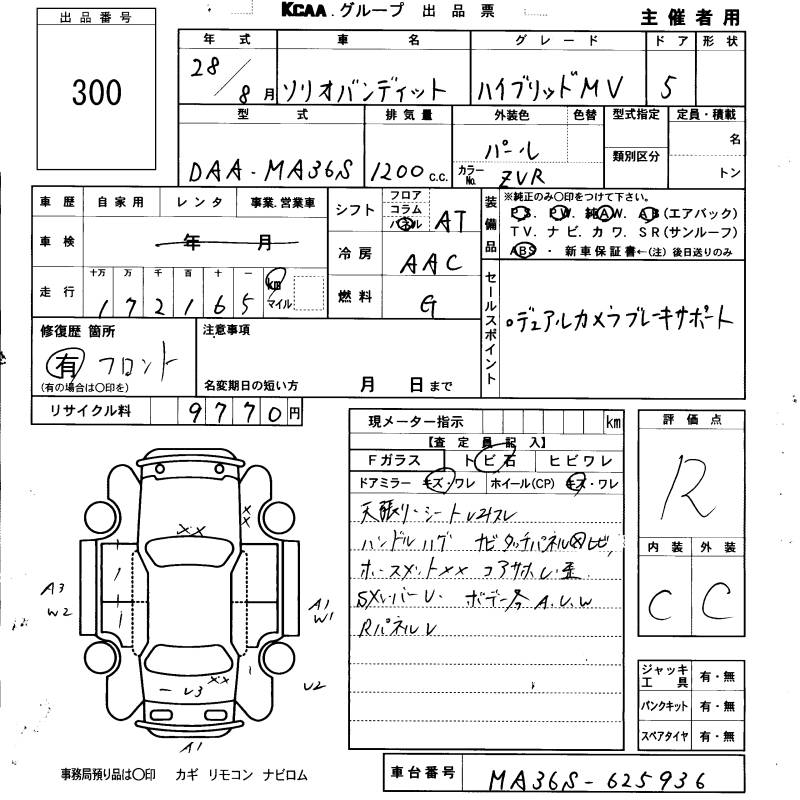 KCAA.グループ 出品票
主催者用
出品番号
300
年式 車名 グレード ドア 形状
28/8月 ソリオバンディット ハイブリッドMV 5
型式 排気量 外装色 色替 型式指定 定員・積載
DAA-MA36S 1200 c.c. パール 名
カラーNo. ZVR 類別区分 トン
車歴 自家用 レンタ 事業.営業車
車検 年 月
走行 十万 万 千 百 十 一 km マイル
1 7 2 1 6 5
シフト フロア コラム パネル AT
冷房 AAC
燃料 G
装備品 ※純正のみ○印をつけて下さい。
P.S. P.W. 純A.W. A.B(エアバック)
TV.ナビ.カワ.SR(サンルーフ)
ABS・新車保証書←(注)後日送りのみ
セールスポイント
デュアルカメラブレーキサポート
修復歴 箇所
有 フロント
(有の場合は○印を)
注意事項
名変期日の短い方 月 日まで
リサイクル料 9770円
現メーター指示 km
【査定員記入】
Fガラス トビ石 ヒビワレ
ドアミラー キズ・ワレ ホイール(CP) キズ・ワレ
天張り・シート
ハンドルハゲ ナビタッチパネル
ホースメットXX コアサポ
ボデー A.U.W
Rパネル
評価点
R
内装 外装
C C
XX
XX
A3
W2
A1
W1
U2
XX
A1
ジャッキ工具 有・無
パンクキット 有・無
スペアタイヤ 有・無
事務局預り品は○印 カギ リモコン ナビロム
車台番号 MA36S-625936